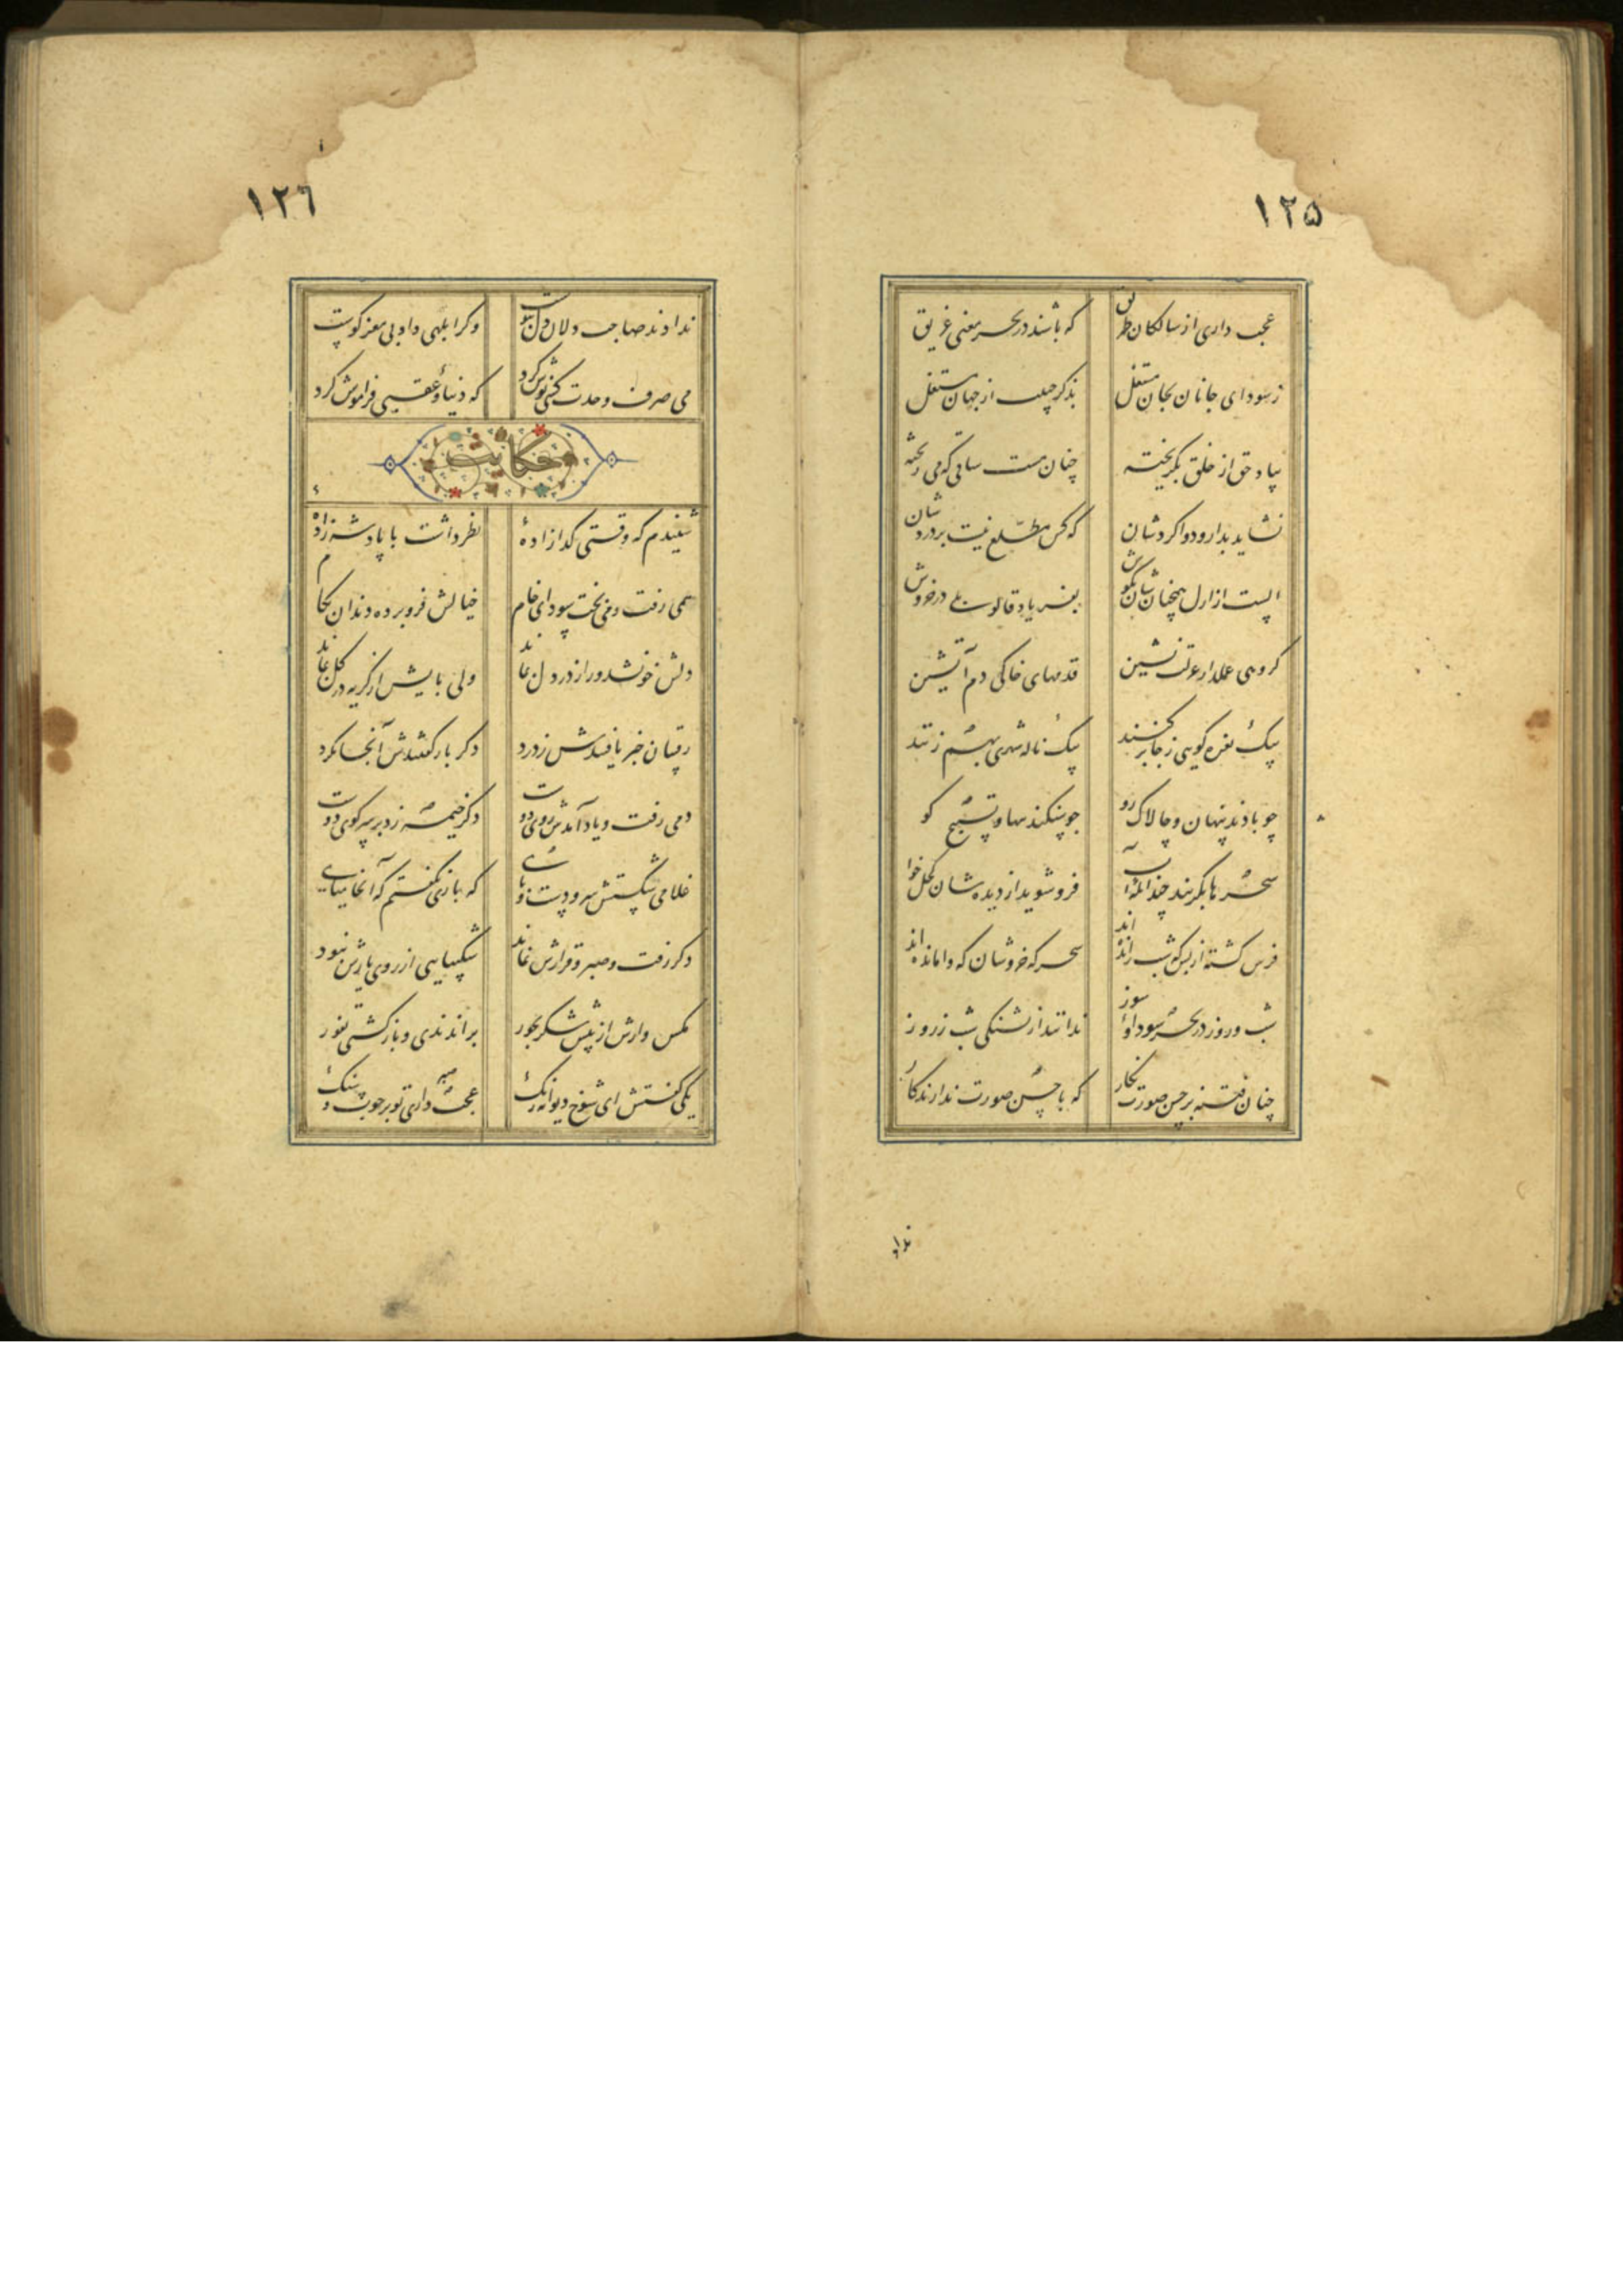 ١٢۵
عجب داری از سالکان طریق
که باشند در بحر معنی غریق
ز سودای جانان بجان مشتغل
بذکر حبیب از جهان مشتغل
بیاد حق از خلق بگریخته
چنان مست ساقی که می ریخته
نشاید بدارو دوا کردشان
که کس مطلع نیست بر دردشان
الست از ازل همچنان شان بگوش
بفریاد قالوا بلی در خروش
گروهی عمل دار عزلت نشین
قدمهای خاکی دم آتشین
بیک نعره کوهی ز جا برکنند
بیک ناله شهری بهم زنند
چو بادند پنهان و چالاک رو
چو سنگند و تسبیح گو
سحرها بگریند چندانکه آب
فرو شوید از دیده شان کحل خواب
فرس کشته از بس که شب رانده اند
سحرگه خروشان که وامانده اند
شب و روز در بحر سودا و سوز
ندانند از شب ز روز
چنان فتنه بر حسن صورت نگار
که با حسن صورت ندارند کار
ندا
١٢٦
ندادند صاحب دلان دل بپوست
وگر ابلهی داد بی مغز کوست
می صرف وحدت کسی نوش کرد
که دنیا و عقبی فراموش کرد
حکایت
شنیدم که وقتی گدازاده
نظر داشت با پادشه زاده
همی رفت و می پخت سودای خام
خیالش فرو برده دندان بکام
دلش خون شد و راز در دل نماند
ولی پایش از گریه در گل نماند
رقیبان خبر یافتندش ز درد
دگر باره گفتندش آنجا مگرد
دمی رفت و یاد آمدش روی دوست
دگر خیمه زد بر سر کوی دوست
غلامی شکستش سر و دست و پای
که باری نگفتم که آنجا میای
دگر رفت و صبر و قرارش نماند
شکیبایی از روی یارش نبود
مگس وارش از پیش شکر بجور
براندندی و باز گشتی بفور
یکی گفتش ای شوخ دیوانه رنگ
عجب صبر داری تو بر چوب و سنگ